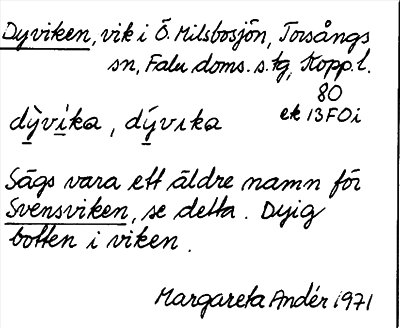 Dyviken, vik i Ö. Milsbosjön, Torsångs
sn, Falu doms. s. tg, Kopp. l.
80
ek 13F0i
dỳvi̱ka, dývıka
Sägs vara ett äldre namn för
Svensviken, se detta. Dyig
botten i viken.
Margareta Andér 1971